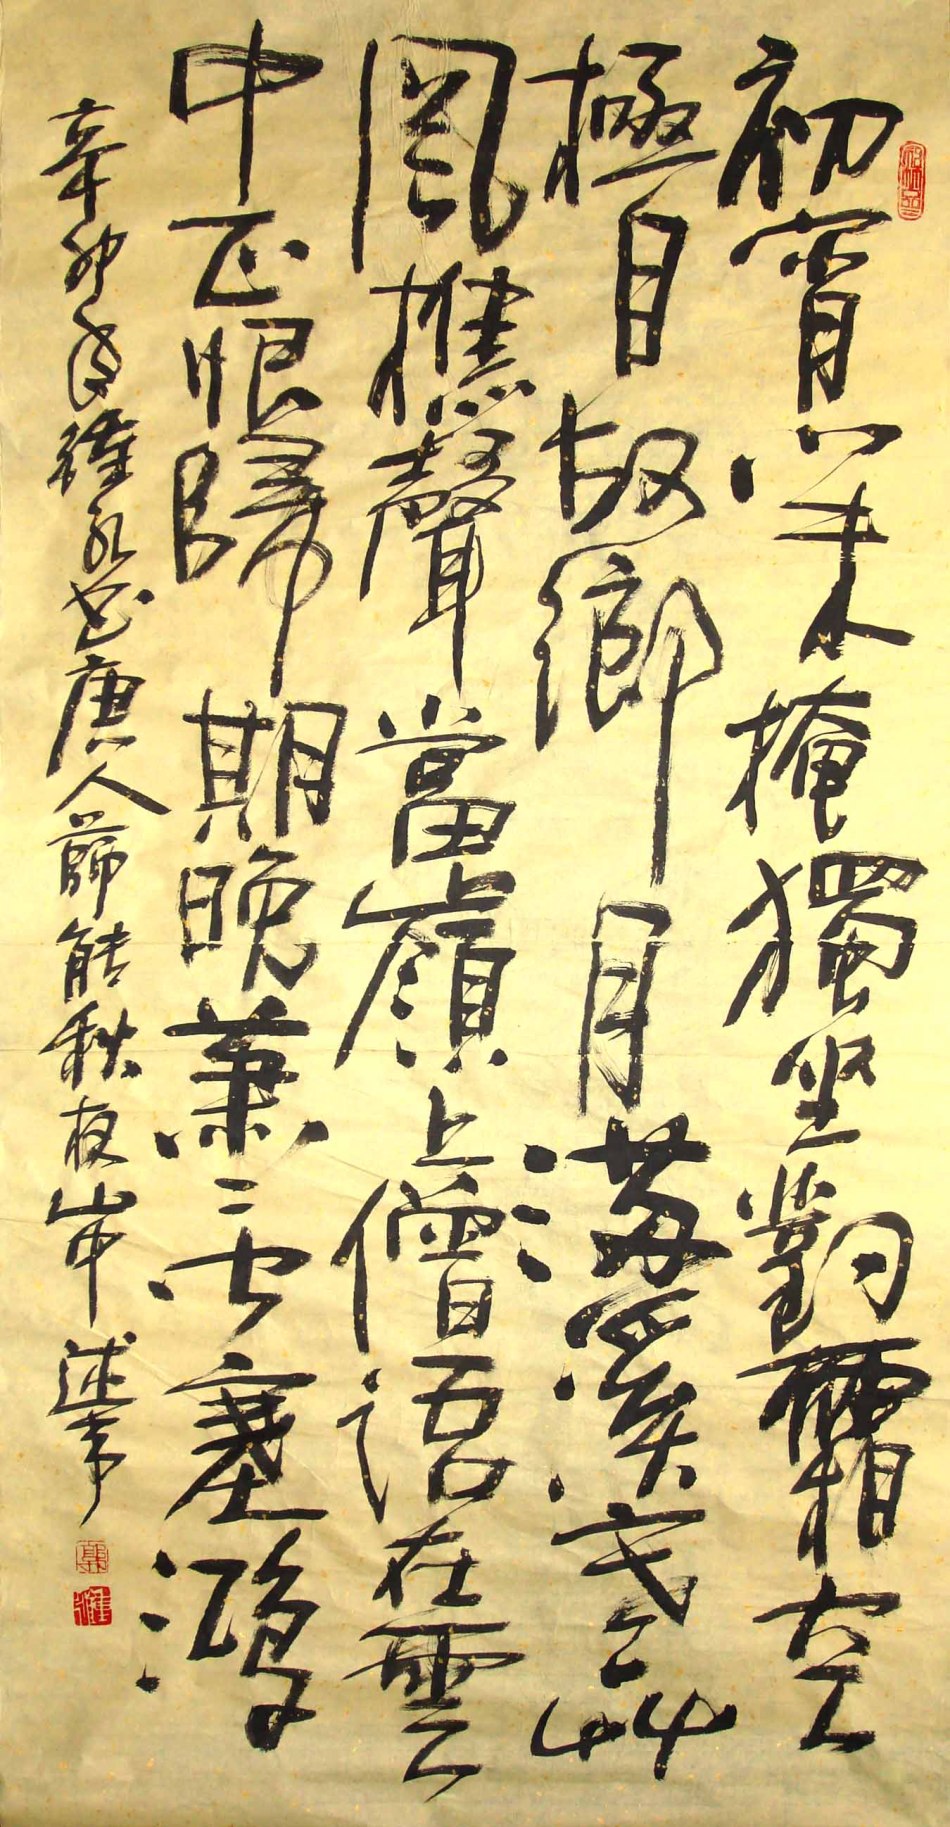 初宵門未掩獨坐對霜空
極目故鄉月滿溪寒艸
風樵聲當嶺上僧語在雲
中正恨歸期晚蕭〻聞塞鴻
辛卯年書唐人薛能秋夜山中述事